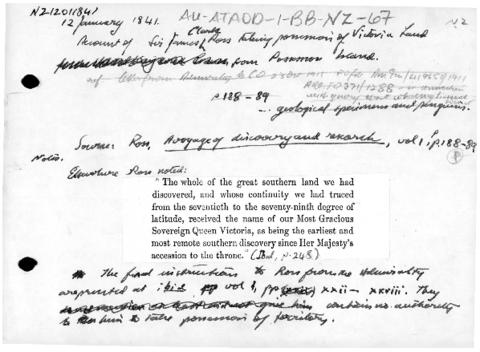 NZ12011841
12 January 1841.
AU-ATADD-1-BB-NZ-67
NZ
Clark
Account of Sir James Ross taking possession of Victoria Land
from Possession Island.
p.188-89
... geological specimens and penguins.
Source: Ross, A voyage of discovery and research, vol 1, p.188-89
Notes.
Elsewhere Ross noted:
"The whole of the great southern land we had
discovered, and whose continuity we had traced
from the seventieth to the seventy-ninth degree of
latitude, received the name of our Most Gracious
Sovereign Queen Victoria, as being the earliest and
most remote southern discovery since Her Majesty's
accession to the throne." (Ibid, p.248)
The final instructions to Ross from the Admiralty
are printed at ibid vol 1, pp xxii-xxviii. They
contain no authority
to Ross to take possession of territory.